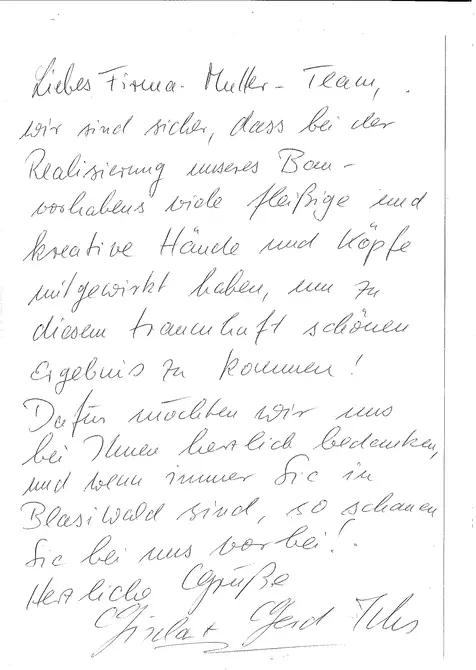 Liebes Firma-Muller-Team,
wir sind sicher, dass bei der
Realisierung unseres Bau-
vorhabens viele fleißige und
kreative Hände und Köpfe
mitgewirkt haben, um zu
diesem traumhaft schönen
Ergebnis zu kommen!
Dafür möchten wir uns
bei Ihnen herzlich bedanken,
und wenn immer Sie in
Blasiwald sind, so schauen
Sie bei uns vorbei!
Herzliche Grüße
Gisela + Gerd